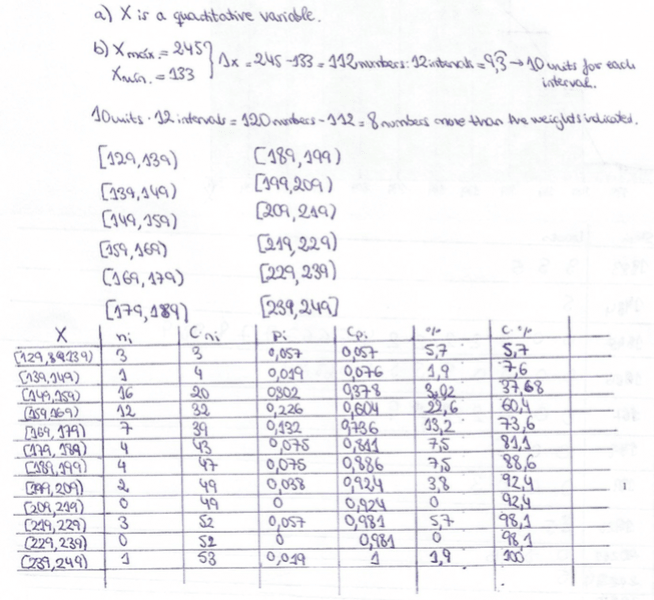 a) X is a quatitative variable.
b) Xmáx. = 245 } Δx = 245 - 133 = 112 numbers : 12 intervals = 9,3 → 10 units for each
Xmín. = 133 interval.
10 units · 12 intervals = 120 numbers - 112 = 8 numbers more than the weights indicates.
[129,139) [189,199)
[139,149) [199,209)
[149,159) [209,219)
[159,169) [219,229)
[169,179) [229,239)
[179,189) [239,249]
X ni Cni pi Cpi % C%
[129,139) 3 3 0,057 0,057 5,7 5,7
[139,149) 1 4 0,019 0,076 1,9 7,6
[149,159) 16 20 0,302 0,378 37,68
[159,169) 12 32 0,226 0,604 22,6 60,4
[169,179) 7 39 0,132 0,736 13,2 73,6
[179,189) 4 43 0,075 0,811 7,5 81,1
[189,199) 4 47 0,075 0,886 7,5 88,6
[199,209) 2 49 0,038 0,924 3,8 92,4
[209,219) 0 49 0 0,924 0 92,4
[219,229) 3 52 0,057 0,981 5,7 98,1
[229,239) 0 52 0 0,981 0 98,1
[239,249) 1 53 0,019 1 1,9 100